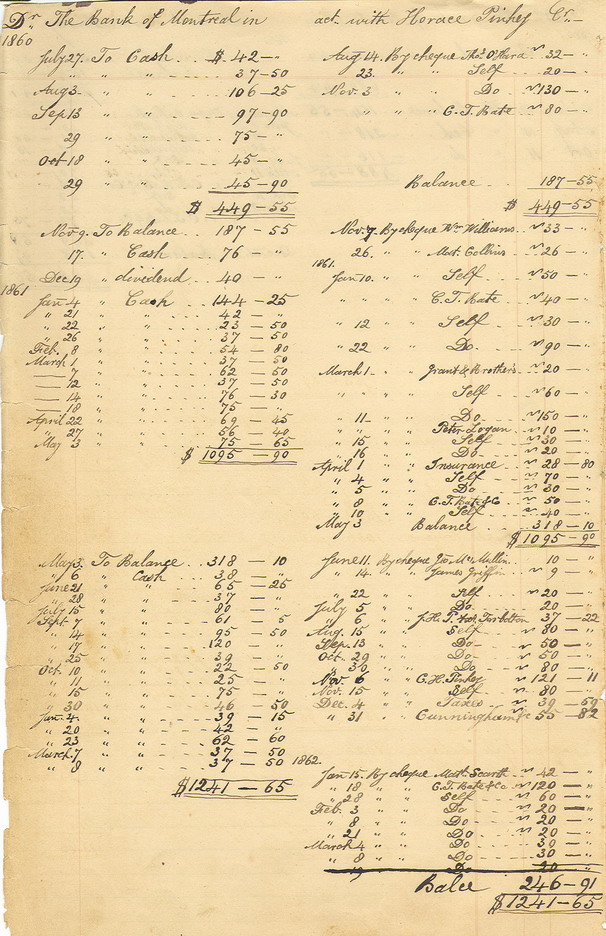 Dr. The Bank of Montreal in act. with Horace Pinhey Cr.
1860
July 27. To Cash $ 42 - " Aug 14. By cheque Thos. O'Hara " 32 - "
" " " 37 - 50 23. " " Self 20 - "
Aug 3 " " 106 - 25 Nov. 3 " " Do " 130 - "
Sep 13 " " 97 - 90 " " " C. T. Bate " 80 - "
29 " " 75 - "
Oct 18 " " 45 - "
29 " " 45 - 90 Balance 187 - 55
$ 449 - 55 $ 449 - 55
Nov 9. To Balance 187 - 55 Nov. 7. By cheque Wm Williams " 33 - "
17. " Cash 76 - " 26. " " Mort. Collins " 26 - "
Dec 19 " dividend 40 - " 1861. Jan 10. " " Self " 50 - "
1861 Jan 4 " Cash 144 - 25 " " " C. T. Bate " 40 - "
" 21 " " 42 - " " 12 " " Self " 30 - "
" 22 " " 23 - 50
" 26 " " 37 - 50 " 22 " " Do. " 90 - "
Feb. 8 " " 54 - 80
March 1 " " 37 - 50 March 1. " " Grant & Brothers " 20 - "
— 7 " " 62 - 50
— 12 " " 37 - 50 " " " Self " 60 - "
— 14 " " 76 - 30
— 18 " " 75 - " " 11 " " Do " 150 - "
April 22 " " 69 - 45 " " " Peter Logan " 10 - "
" 27 " " 56 - 40 " 15 " " Self " 30 - "
May 3 " " 75 - 65 " 16 " " Do " 20 - "
$ 1095 - 90 April 1 " " Insurance " 28 - 80
" 4 " " Self " 70 - "
" 5 " " Do " 30 - "
" 8 " " C. T. Bate & Co " 50 - "
" 10 " " Self " 40 - "
May 3 Balance 318 - 10
$ 1095 - 90
May 3. To Balance 318 - 10 June 11. By cheque Jno McMillin 10 - "
" 6 " Cash 38 - " " 14. " " James Griffin " 9 - "
June 21 " " 65 - 25
" 28 " " 37 - " " 22 " " Self " 20 - "
July 15 " " 80 - " July 5 " " Do. 20 - "
Sept 7 " " 61 - 5 " 6 " " J. H. P. Tarbolton 37 - 22
" 14 " " 95 - 50 Aug. 15 " " Self " 80 - "
" 17 " " 120 - " Sep. 13 " " Do " 50 - "
" 25 " " 39 - " Oct. 29 " " Do " 50 - "
Oct. 10 " " 22 - 50 " 30 " " Do " 80 - "
" 11 " " 25 - " Nov. 6 " " C. H. Pinhey " 121 - 11
" 15 " " 75 - " Nov. 15 " " Self " 80 - "
" 30 " " 46 - 50 Dec. 4 " " Taxes " 39 - 59
Jan. 4 " " 39 - 15 " 31 " Cunningham & c 55 - 82
" 20 " " 42 - "
" 23 " " 62 - 60
March 7 " " 37 - 50 1862.
" 8 " " 37 - 50
$ 1241 - 65 Jan 15. By cheque Mort. Scarth " 42 - "
" 18 " " C. T. Bate & Co " 120 - "
" 28 " " Self " 60 - "
Feb. 3 " " Do " 20 - "
" 8 " " Do " 20 - "
" 21 " " Do " 20 - "
March 4 " " Do 30 - "
" 8 " " Do 30 - "
" 19 Do 20 - "
Balce 246 - 91
$ 1241 - 65